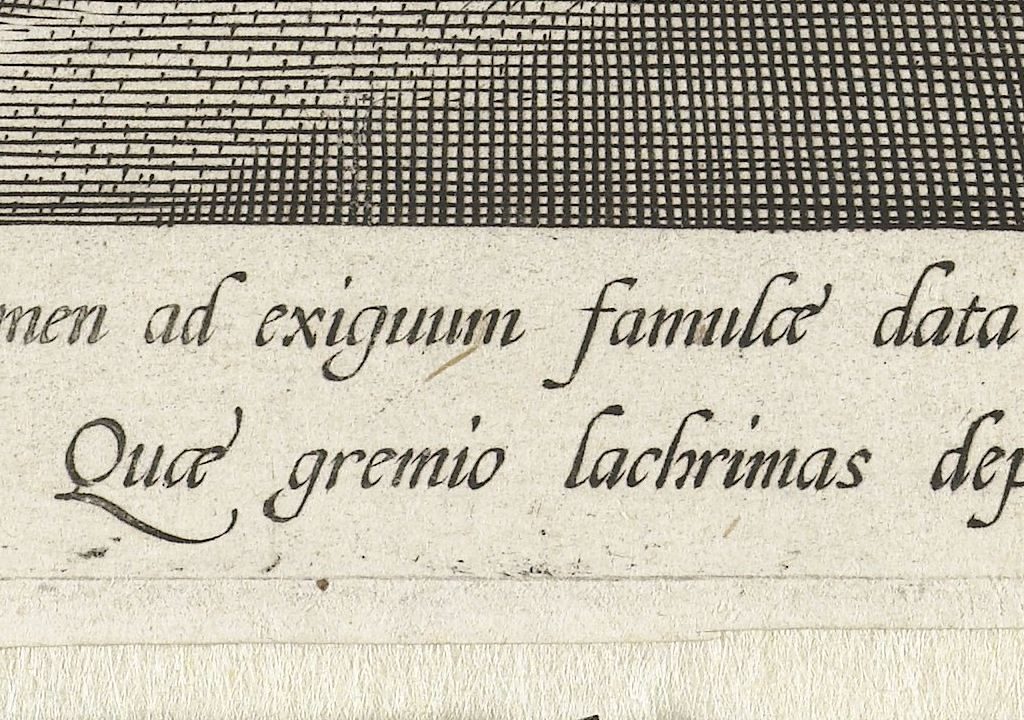 men ad exiguum famulæ data
Quæ gremio lachrimas dep